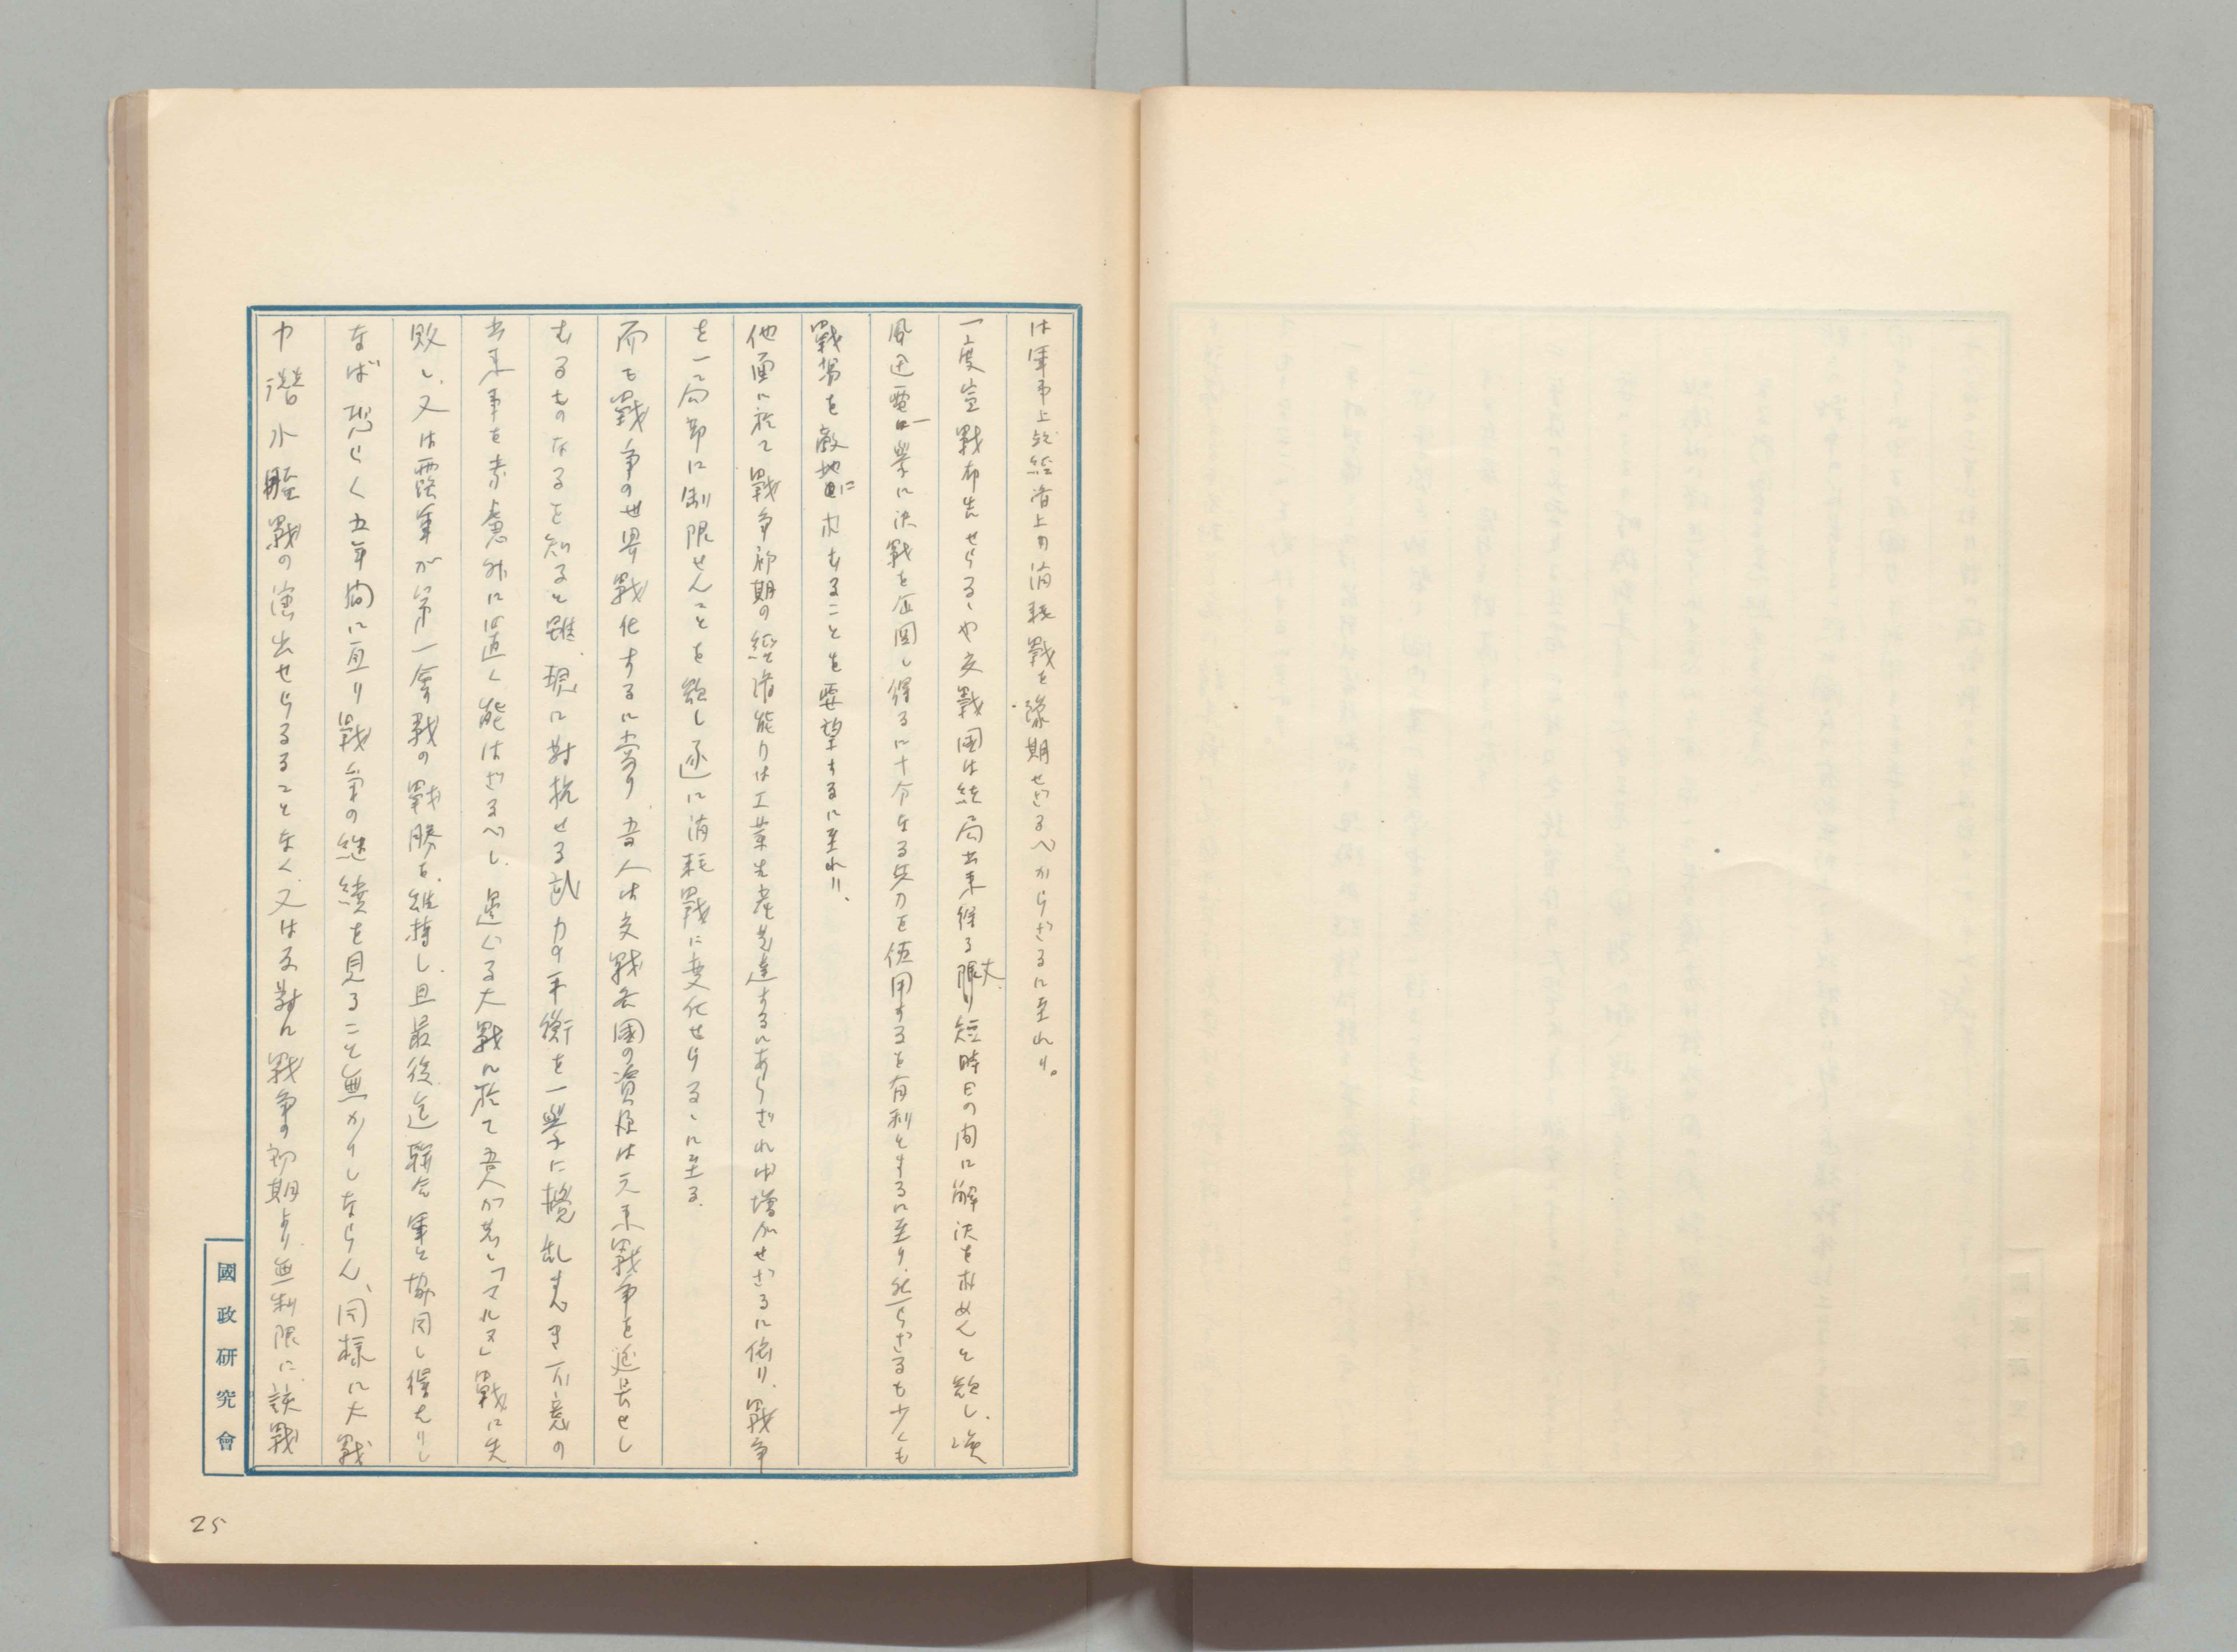 は軍事上並経済上の消耗戰を豫期せざるべからざるに至れり。
一度宣戰布告せらるゝや交戰國は結局出来得る限り短時日の間に解決を求めんと欲し、強
風迅雷一擧に決戰を企図し得るに十分なる兵力を使用するを有利とするに至り、然らざるも少くも
戰場を敵地に求むることを要望するに至れり、
他面に於て戰争初期の經済能力は工業生産発達するにあらざれば増加せざるに依り、戰争
を一局部に制限せんことを欲し逐に消耗戰に変化せらるゝに至る、
而も戰争の世界戰化するに當り、吾人は交戰各國の資源は元来戰争を延長せし
むるものなるを知ると雖、現に對抗せる武力の平衡を一擧に攪乱すべき不意の
出来事を考慮外に置く能はざるべし、過ぐる大戰に於て吾人が若し「マルヌ」戰に失
敗し、又は露軍が第一會戰の戰勝を維持し、且最後迄聯合軍と協同し得たりし
ならば恐らく五年間に亘り戰争の継續を見ること無かりしならん、同様に大戰
中潜水艦戰の演出せらるることなく、又は反對に戰争の初期より無制限に該戰
國政研究會
25